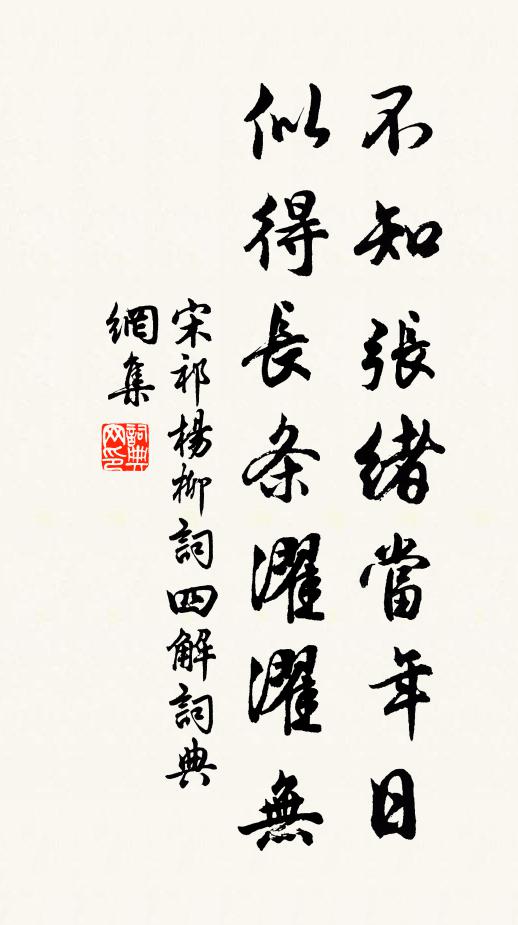 不知張緒當年日
似得長条濯濯無
宋祁楊柳詞四解詞典
網集
詞典
网印